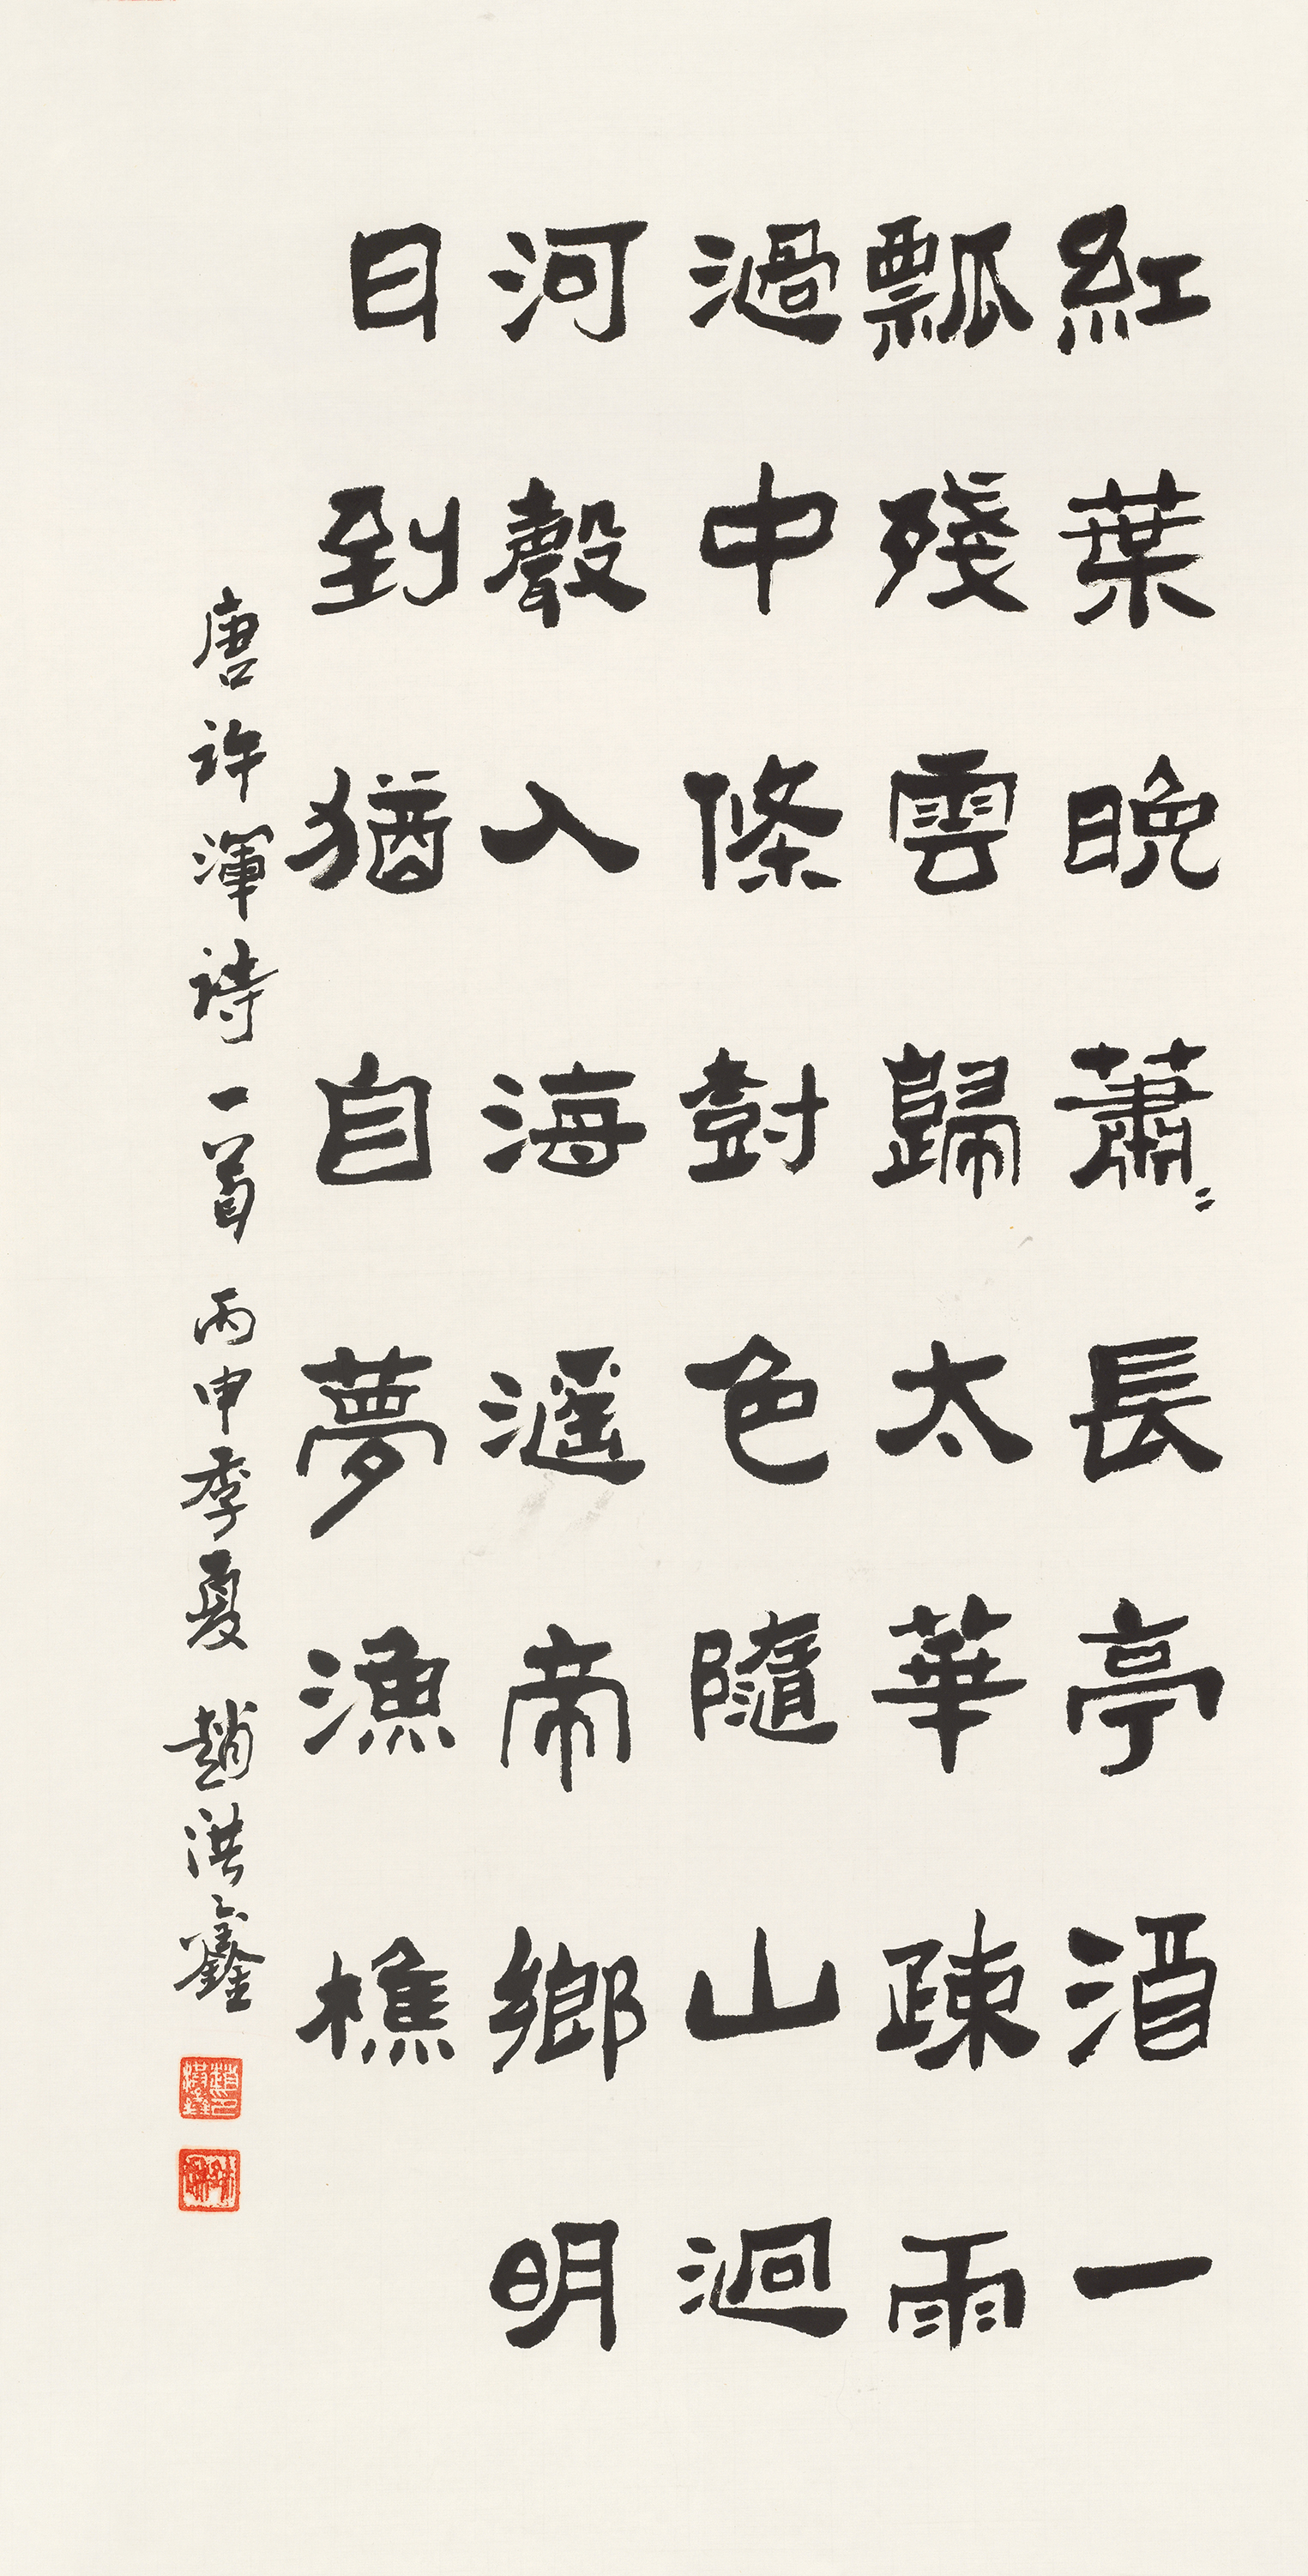 紅葉晚蕭〻長亭酒一
瓢殘雲歸太華疎雨
過中條尌色隨山迴
河聲入海遥帝鄉明
日到猶自夢漁樵
唐許渾詩一首 丙申季夏 趙洪鑫